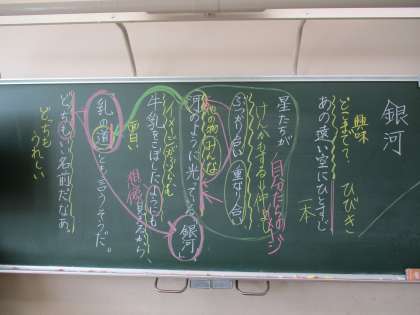 銀河
興味
どこまで？　ひびき
あの遠い空にひとすじ
一本
星たちが
自分たちの
けんかもする
仲
ぶつかり合い、重なり合い
他の物みんな
河のように光っている「銀河」。
牛乳をこぼしたようにも
想像
見えるから、
白い
乳の道とも言うそうだ。
どちらもいい名前だなあ。
どっちも
うれしい